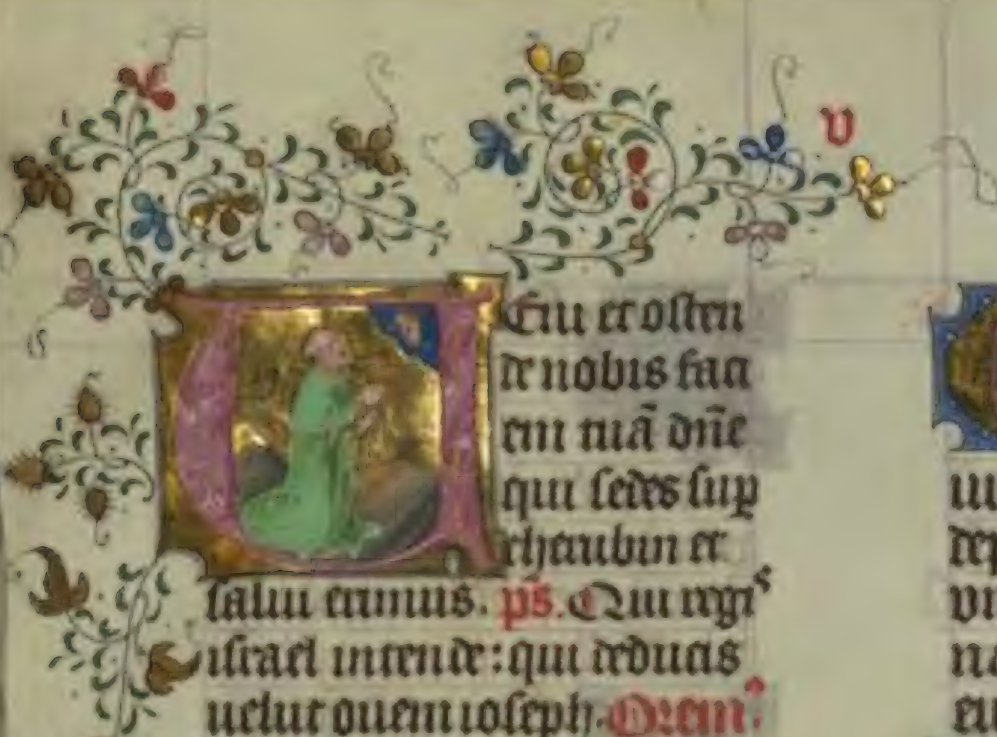 v
Veni et osten
de nobis faci
em tuã dñe
qui sedes sup
cherubin et
salui erimus. ps. Qui regis
israel intende: qui deducis
uelut ouem ioseph. Orem⁹: